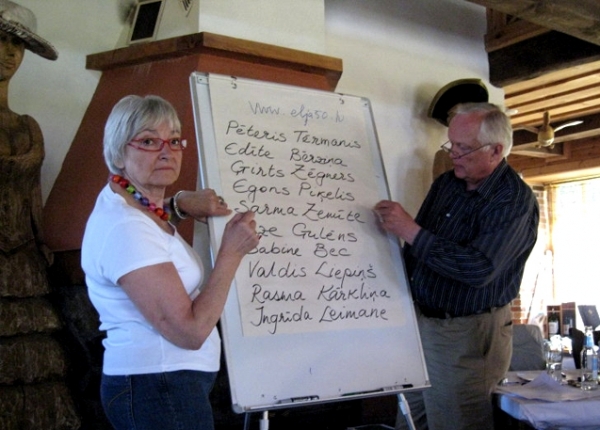 www.elfa50.lv
Pēteris Tērmanis
Edīte Bērziņa
Ģirts Zēgners
Egons Piķelis
Sarma Zemūte
Gulēns
Sabīne Bec
Valdis Liepiņš
Rasma Kārkliņa
Ingrīda Leimane